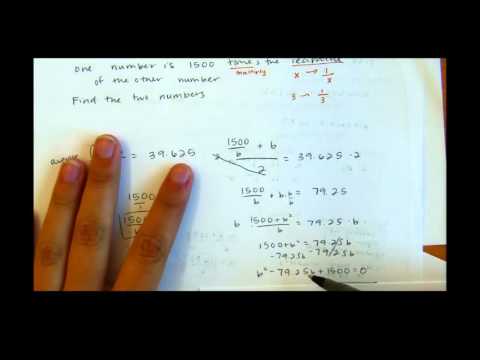 one number is 1500 times the reciprocal
multiply
x → 1/x
of the other number
3 → 1/3
Find the two numbers
average
= 39.625
2 · (1500/b + b)/2 = 39.625 · 2
1500/b + b · b/b = 79.25
b · (1500+b²)/b = 79.25 · b
1500+b² = 79.25b
-79.25b -79.25b
b² - 79.25b + 1500 = 0